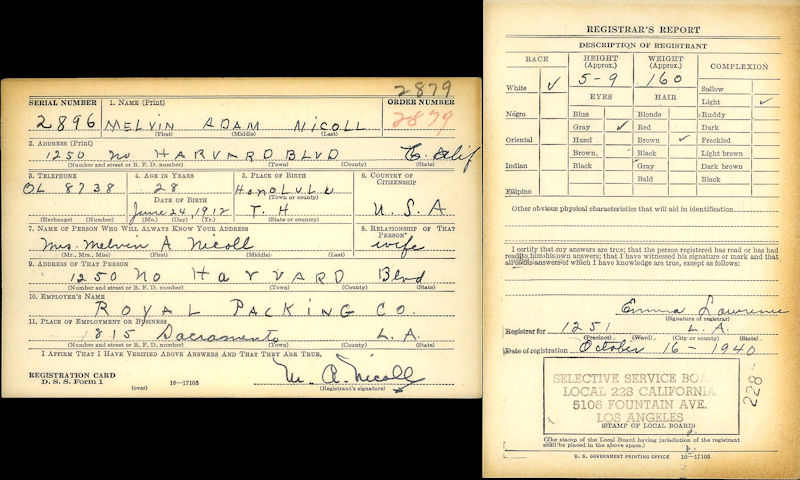 2879
SERIAL NUMBER 1. NAME (Print) ORDER NUMBER
2896 MELVIN ADAM NICOLL 2879
(First) (Middle) (Last)
2. ADDRESS (Print)
1250 No HARVARD BLVD Calif
(Number and street or R. F. D. number) (Town) (County) (State)
3. TELEPHONE 4. AGE IN YEARS 5. PLACE OF BIRTH 6. COUNTRY OF CITIZENSHIP
OL 8738 28 HONOLULU
DATE OF BIRTH (Town or county)
June 24, 1912 T. H U. S. A
(Exchange) (Number) (Mo.) (Day) (Yr.) (State or country)
7. NAME OF PERSON WHO WILL ALWAYS KNOW YOUR ADDRESS 8. RELATIONSHIP OF THAT PERSON
Mrs. Melvin A Nicoll wife
(Mr., Mrs., Miss) (First) (Middle) (Last)
9. ADDRESS OF THAT PERSON
1250 No HARVARD Blvd
(Number and street or R. F. D. number) (Town) (County) (State)
10. EMPLOYER'S NAME
ROYAL PACKING CO.
11. PLACE OF EMPLOYMENT OR BUSINESS
1815 Sacramento L.A.
(Number and street or R. F. D. number) (Town) (County) (State)
I AFFIRM THAT I HAVE VERIFIED ABOVE ANSWERS AND THAT THEY ARE TRUE.
REGISTRATION CARD M. A. Nicoll
D. S. S. Form 1 (over) 16—17105 (Registrant's signature)
REGISTRAR'S REPORT
DESCRIPTION OF REGISTRANT
RACE HEIGHT (Approx.) WEIGHT (Approx.) COMPLEXION
5-9 160
White ✓ Sallow
EYES HAIR Light ✓
Negro Blue Blonde Ruddy
Gray ✓ Red Dark
Oriental Hazel Brown ✓ Freckled
Brown Black Light brown
Indian Black Gray Dark brown
Bald Black
Filipino
Other obvious physical characteristics that will aid in identification
I certify that my answers are true; that the person registered has read or has had
read to him his own answers; that I have witnessed his signature or mark and that
all of his answers of which I have knowledge are true, except as follows:
Emma Lawrence
(Signature of registrar)
Registrar for 1251 L. A.
(Precinct) (Ward) (City or county) (State)
Date of registration October 16 - 1940
SELECTIVE SERVICE
LOCAL 228 CALIFORNIA
5106 FOUNTAIN AVE.
LOS ANGELES
(STAMP OF LOCAL BOARD)
228
(The stamp of the Local Board having jurisdiction of the registrant
shall be placed in the above space.)
U. S. GOVERNMENT PRINTING OFFICE 16—17105